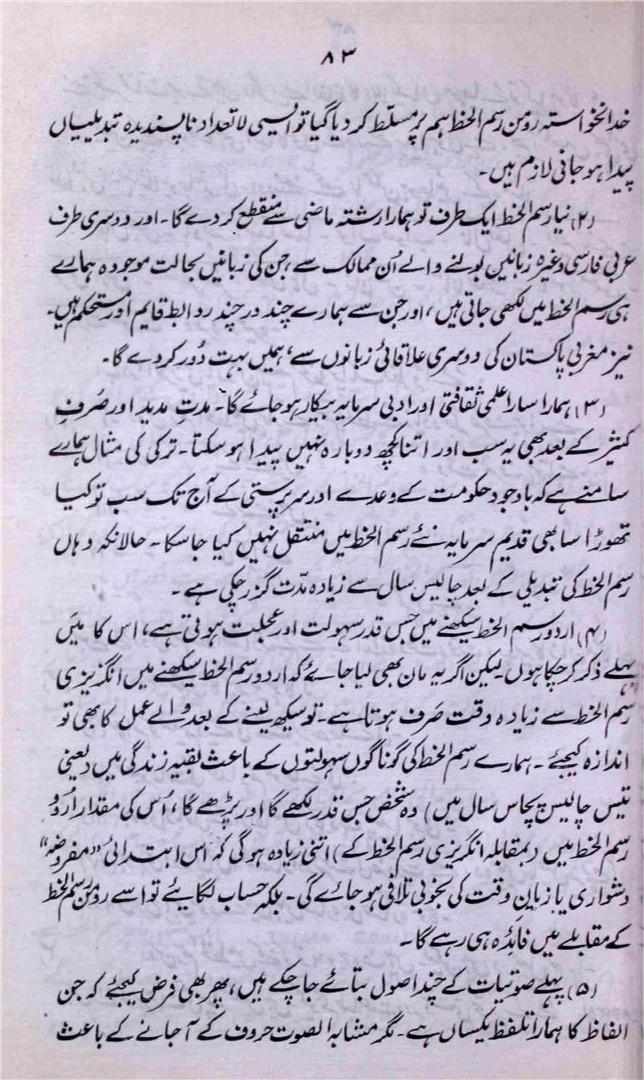 ۸۳
خدانخواستہ رومن رسم الخط ہم پر مسلّط کر دیا گیا تو ایسی لاتعداد ناپسندیدہ تبدیلیاں
پیدا ہو جانی لازم ہیں۔
(۲) نیا رسم الخط ایک طرف تو ہمارا رشتہ ماضی سے منقطع کر دے گا۔ اور دوسری طرف
عربی فارسی وغیرہ زبانیں بولنے والے اُن ممالک سے، جن کی زبانیں بحالت موجودہ ہمارے
ہی رسم الخط میں لکھی جاتی ہیں، اور جن سے ہمارے چند در چند روابط قایم اور مستحکم ہیں۔
نیز مغربی پاکستان کی دوسری علاقائی زبانوں سے، ہمیں بہت دُور کر دے گا۔
(۳) ہمارا سارا علمی ثقافتی اور ادبی سرمایہ بیکار ہو جائے گا۔ مدتِ مدید اور صَرفِ
کثیر کے بعد بھی یہ سب اور اتنا کچھ دوبارہ نہیں پیدا ہو سکتا۔ ترکی کی مثال ہمارے
سامنے ہے کہ باوجود حکومت کے وعدے اور سرپرستی کے آج تک سب تو کیا
تھوڑا سا بھی قدیم سرمایہ نئے رسم الخط میں منتقل نہیں کیا جا سکا۔ حالانکہ وہاں
رسم الخط کی تبدیلی کے بعد چالیس سال سے زیادہ مدّت گزر چکی ہے۔
(۴) اردو رسم الخط سیکھنے میں جس قدر سہولت اور عجلت ہوتی ہے، اس کا میں
پہلے ذکر کر چکا ہوں۔ لیکن اگر یہ مان بھی لیا جائے کہ اردو رسم الخط سیکھنے میں انگریزی
رسم الخط سے زیادہ وقت صَرف ہوتا ہے۔ تو سیکھ لینے کے بعد والے عمل کا بھی تو
اندازہ کیجئے۔ ہمارے رسم الخط کی گوناگوں سہولتوں کے باعث بقیہ زندگی میں (یعنی
تیس چالیس پچاس سال میں) وہ شخص جس قدر لکھے گا اور پڑھے گا، اُس کی مقدار اردُو
رسم الخط میں (بمقابلہ انگریزی رسم الخط کے) اتنی زیادہ ہو گی کہ اس ابتدائی "مفروضہ"
دشواری یا زیانِ وقت کی بخوبی تلافی ہو جائے گی۔ بلکہ حساب لگایئے تو اسے رومن رسم الخط
کے مقابلے میں فائدہ ہی رہے گا۔
(۵) پہلے صوتیات کے چند اصول بتائے جا چکے ہیں، پھر بھی فرض کیجئے کہ جن
الفاظ کا ہمارا تلفظ یکساں ہے۔ مگر مشابہ الصوت حروف کے آ جانے کے باعث